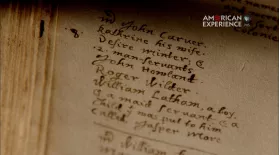 AMERICAN
EXPERIENCE
PBS
mr John Carver.
8. kathrine his wife.
Desire minter; &
2. man-servants
John Howland
Roger Wilder
William Latham, a boy.
& a maid servant. & a
child yt was put to him
called Jasper More
mr William